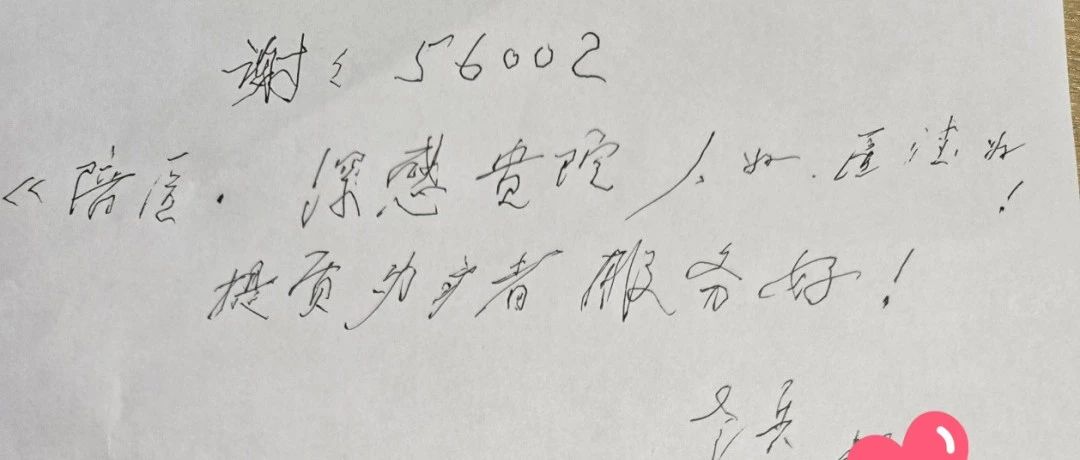 谢谢 56002
《陪医. 深感贵院人好.医德好!
提质为患者服务好!
老兵